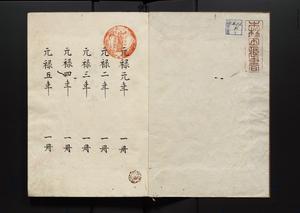 元禄元年 一冊
元禄二年 一冊
元禄三年 一冊
元禄四年 一冊
元禄五年 一冊